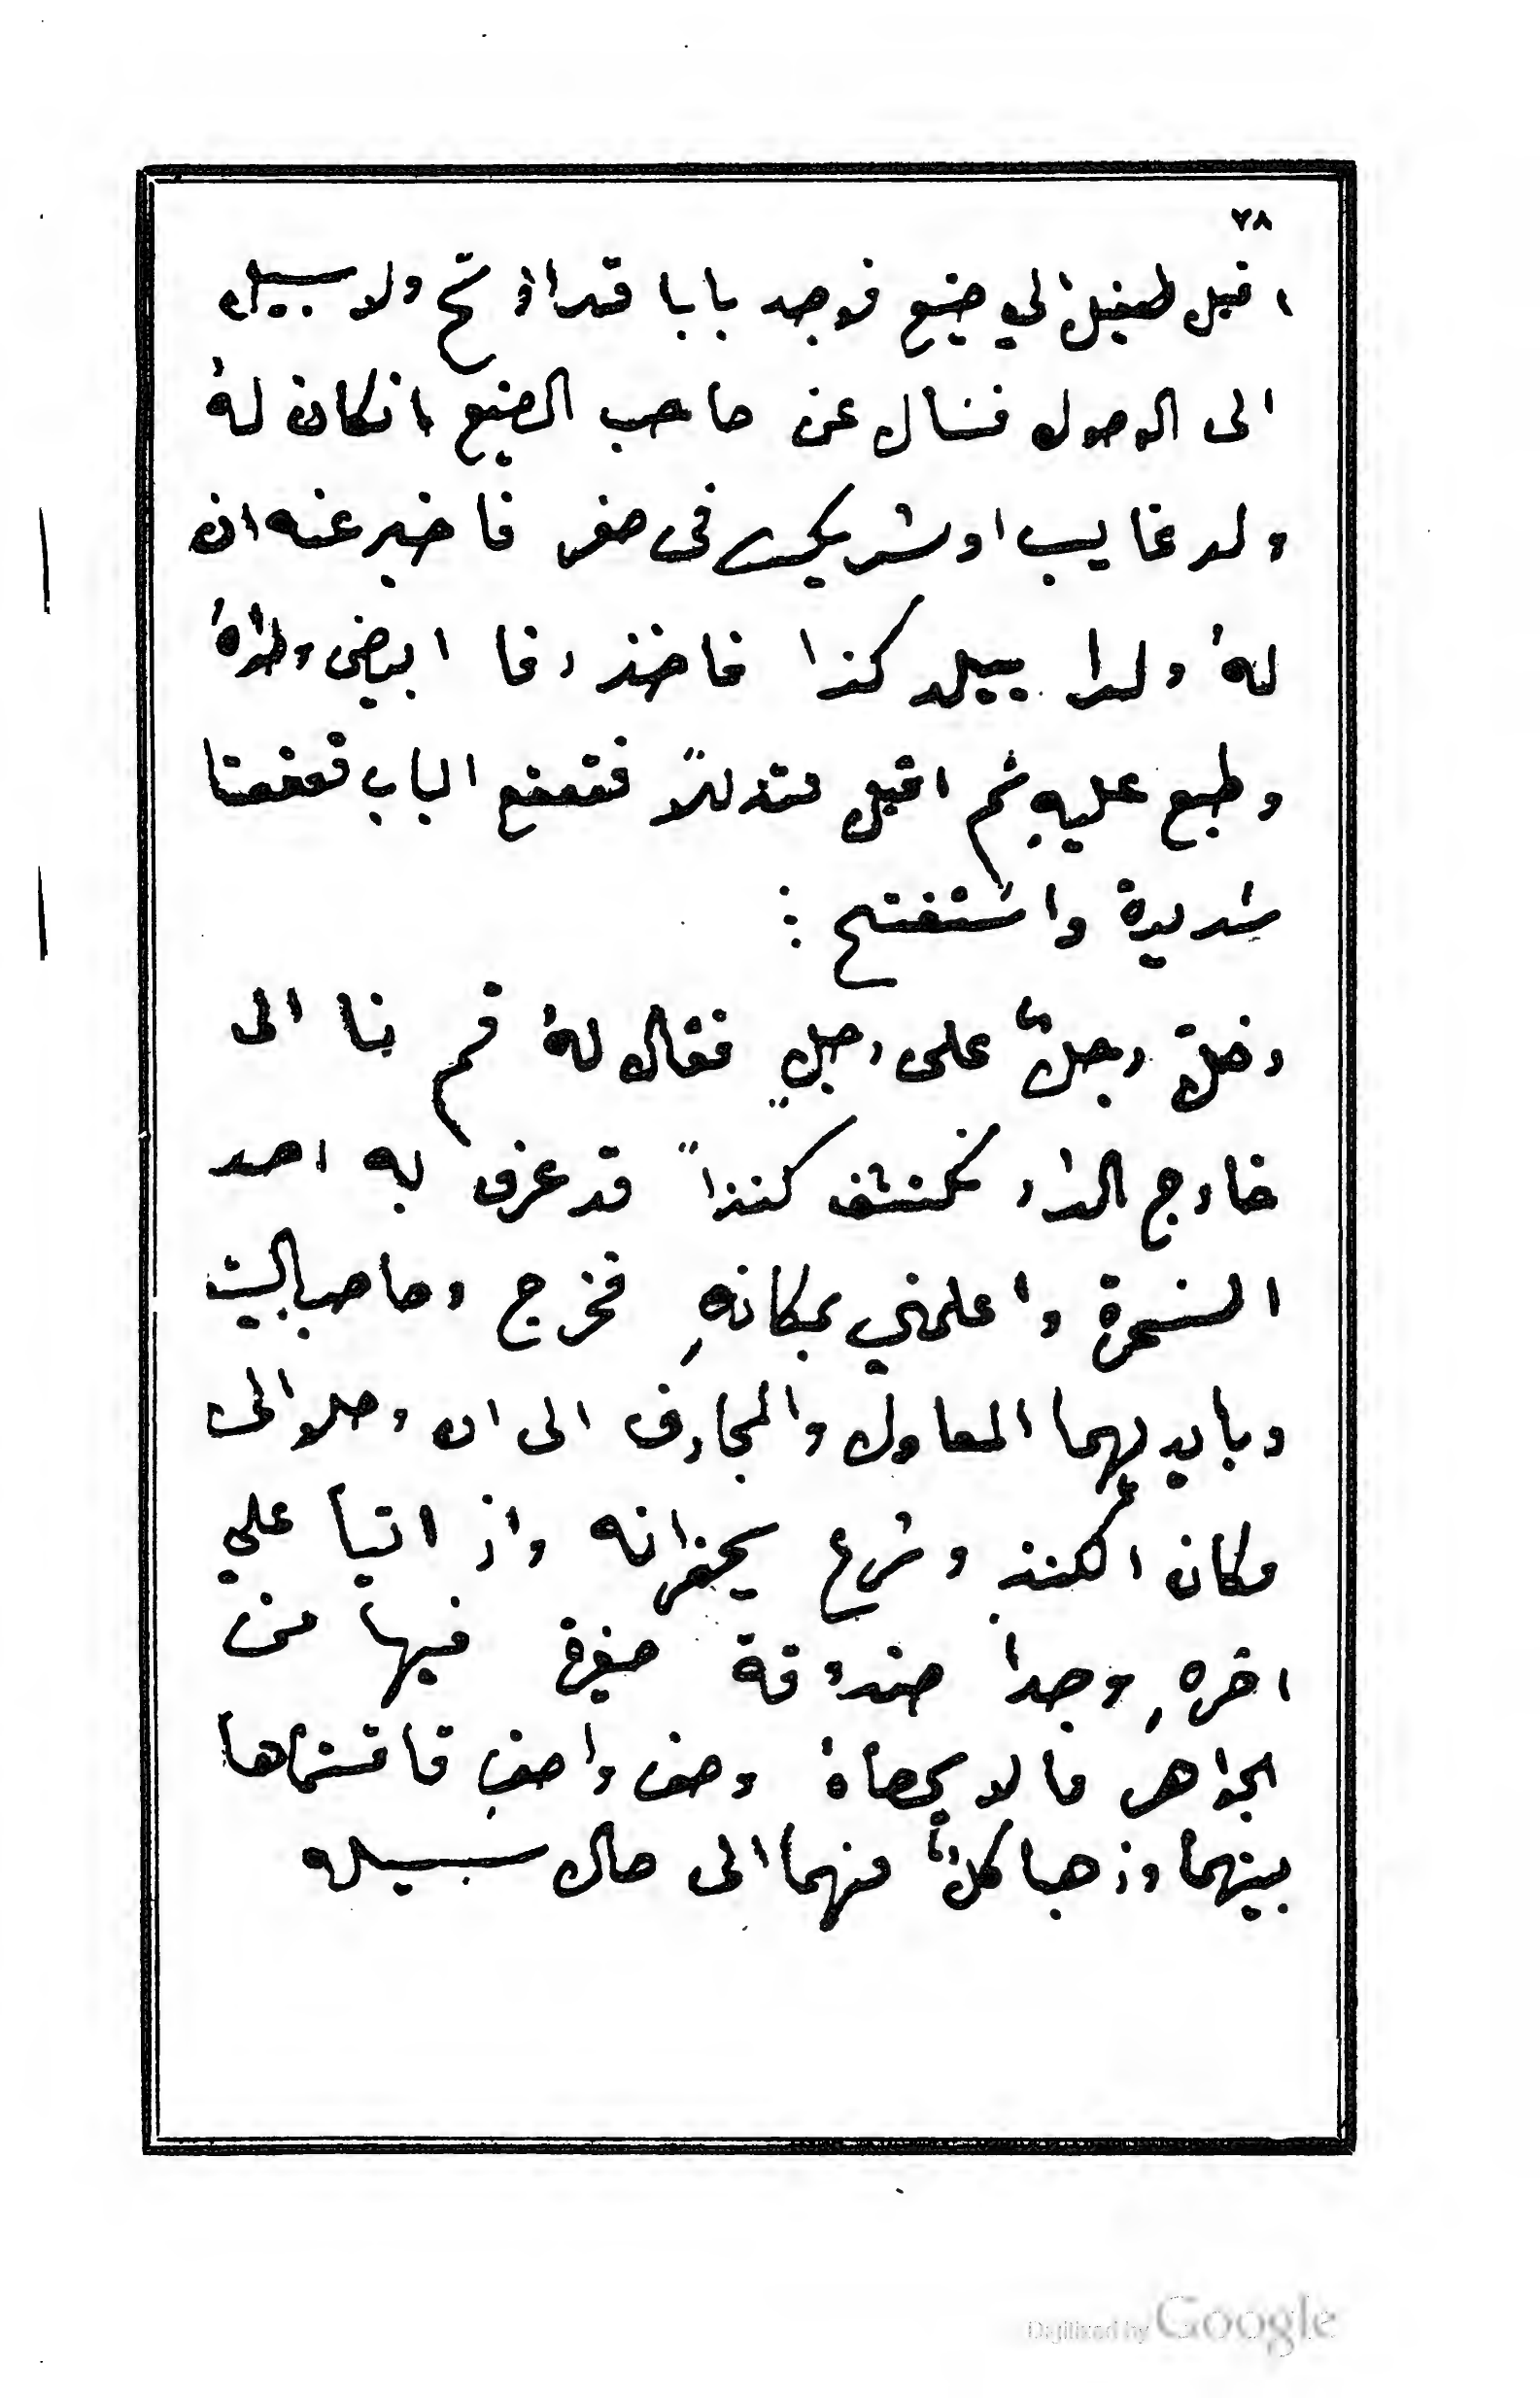 ٧٨
اقبل طفيل الي صنيع فوجد بابا قد ارتج ولا سبيل
الى الوصول فسال عن صاحب الصنيع انكان لهُ
ولد غايب او شريك في صفر فاخبر عنه ان
لهُ ولدا ببلد كذا فاخذ رقا ابيض وطواهُ
وطبع عليهِ ثم اقبل متدللاً فقعقع الباب قعقعتا
شديدة واستفتح :
دخل رجلٌ على رجلٍ فقال لهُ قم بنا الى
خارج الدار نكتشف كنزاً قد عرف به احد
السحرة واعلمني بمكانهِ فخرج وصاحب البيت
وبايديهما المعاول والمجارف الى ان وصلوا الى
مكان الكنز وشرع يحفرانه واذ اتيا علي
اخرهِ وجدا صندوقة صغيرة فيها من
الجواهر ما لا يحصاهُ وصف واصفٍ فاقتسماها
بينهما وذهبا كلٌ منهما الى حال سبيله
Digitized by Google